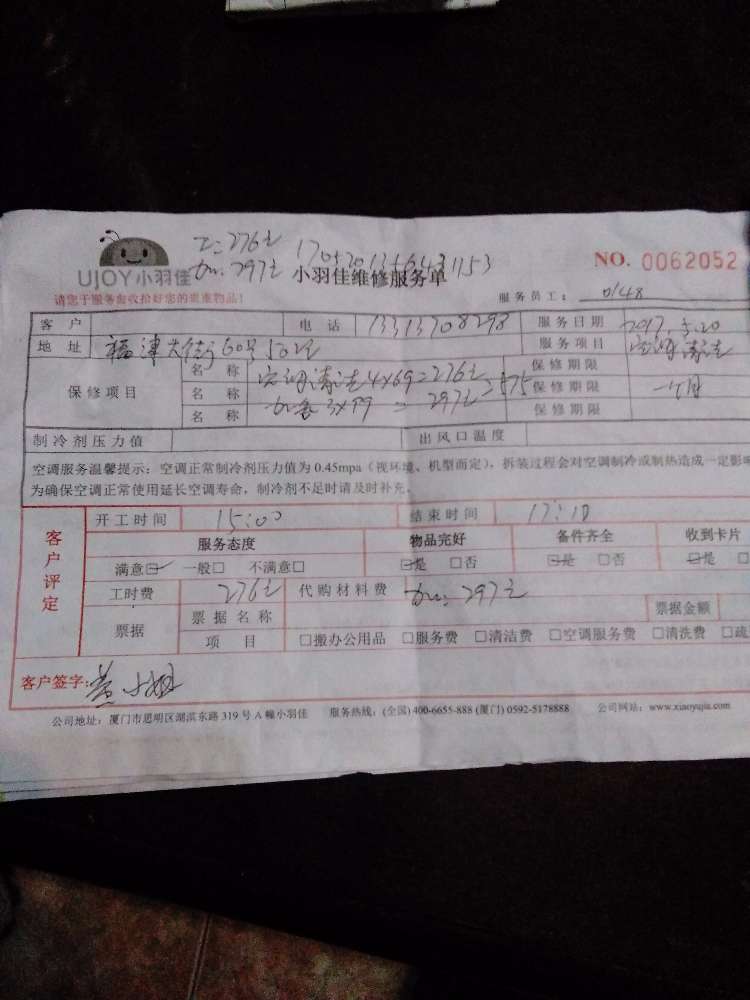 工:276元 170520134643153
加:297元
UJOY小羽佳 小羽佳维修服务单 NO. 0062052
请您于服务前收拾好您的贵重物品! 服务员工: 0148
客 户 电 话 13313708298 服务日期 2017.5.20
地 址 福津大街60号502 服务项目 空调清洗
保修项目 名 称 空调清洗4×69=276元 保修期限
名 称 加氟3×99=297元 575 保修期限 一个月
名 称 保修期限
制冷剂压力值 出风口温度
空调服务温馨提示:空调正常制冷剂压力值为 0.45mpa(视环境、机型而定),拆装过程会对空调制冷或制热造成一定影响
为确保空调正常使用延长空调寿命,制冷剂不足时请及时补充。
客户评定 开工时间 15:00 结束时间 17:10
服务态度 物品完好 备件齐全 收到卡片
满意☑ 一般□ 不满意□ ☑是 □否 ☑是 □否 ☑是 □
工时费 276元 代购材料费 加:297元
票据 票据名称 票据金额
项 目 □搬办公用品 □服务费 □清洁费 □空调服务费 □清洗费 □疏
客户签字: 黄小姐
公司地址:厦门市思明区湖滨东路 319 号 A 幢小羽佳 服务热线:(全国) 400-6655-888 (厦门) 0592-5178888 公司网站:www.xiaoyujia.com